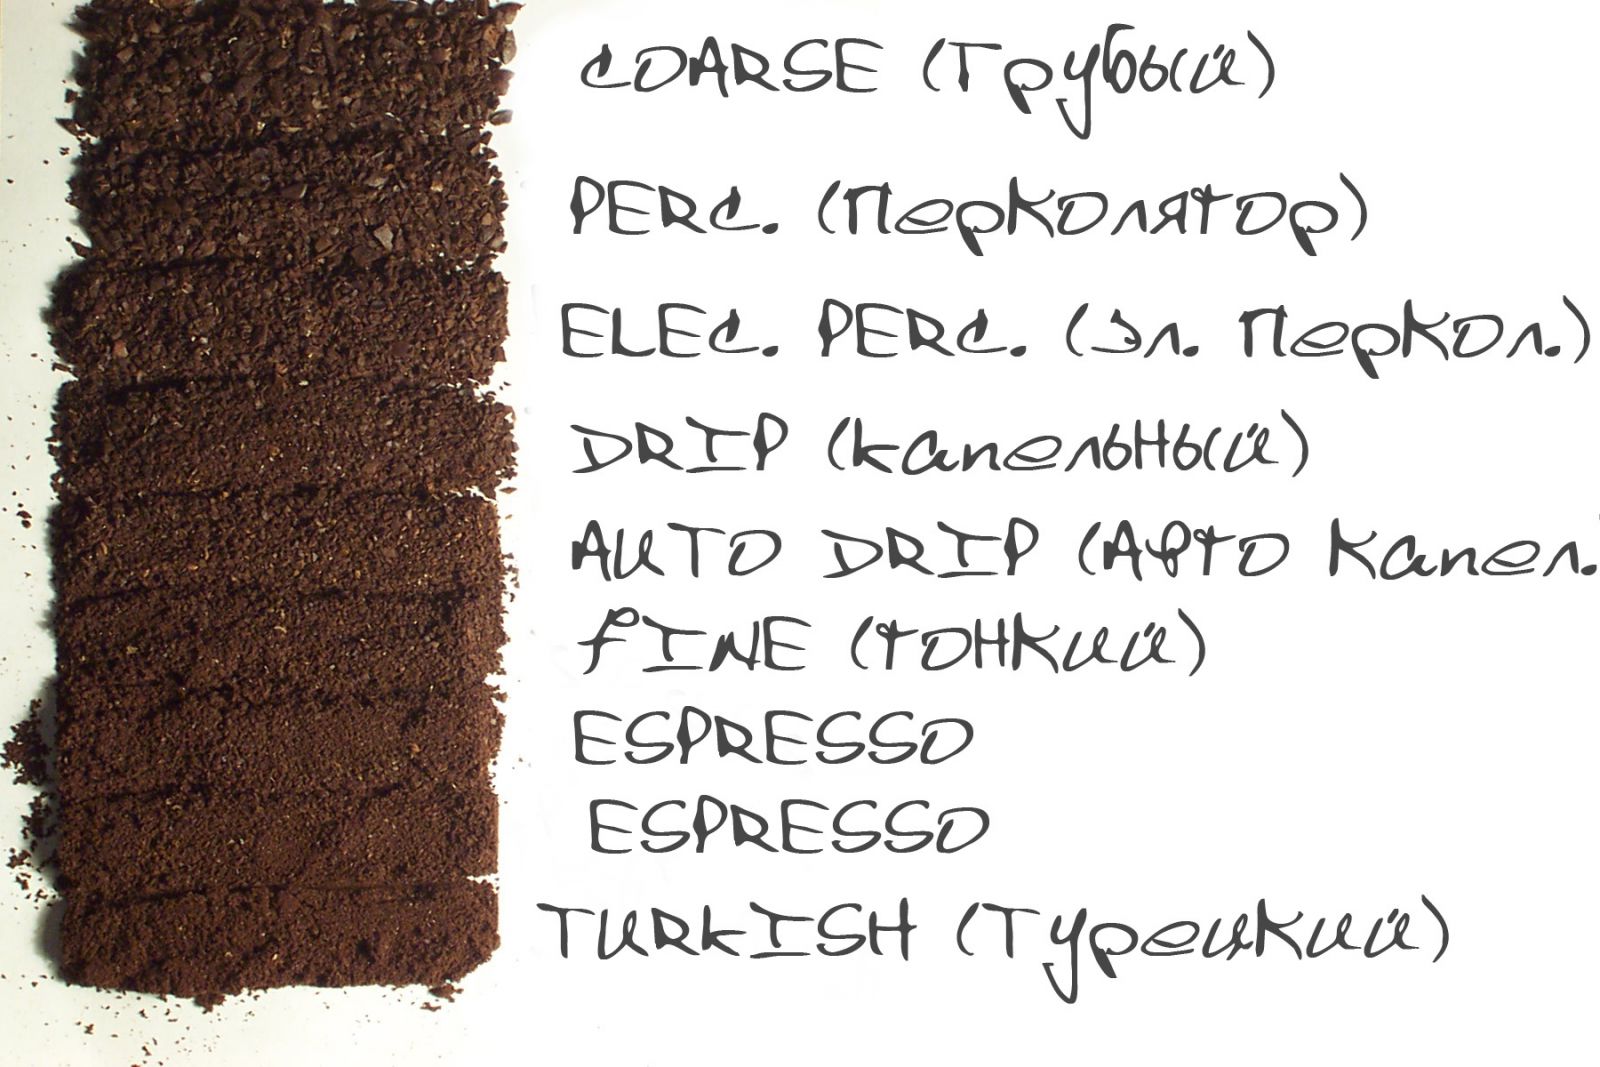 COARSE (Грубый)
PERC. (Перколятор)
ELEC. PERC. (Эл. Перкол.)
DRIP (капельный)
AUTO DRIP (Авто Капел.
FINE (тонкий)
ESPRESSO
ESPRESSO
TURKISH (Турецкий)